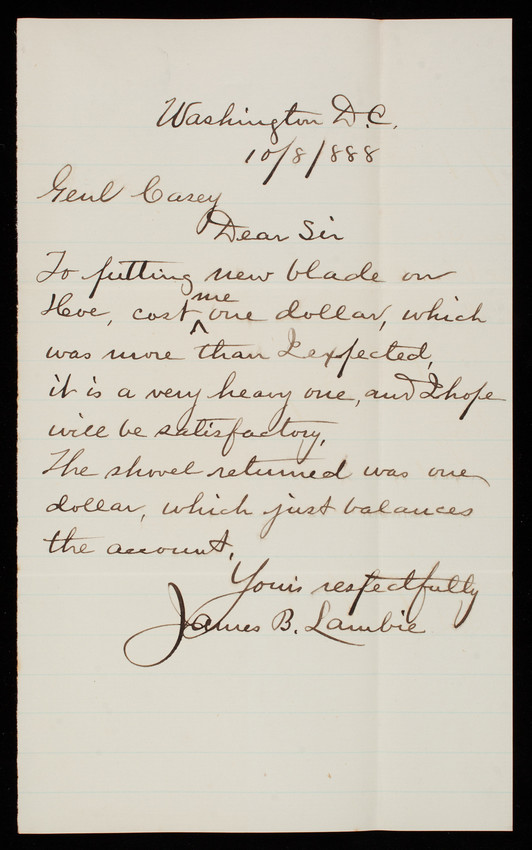 Washington D.C.
10/8/888
Genl Casey
Dear Sir
To putting new blade on
Hoe, cost me one dollar, which
was more than I expected,
it is a very heavy one, and I hope
will be satisfactory,
The shovel returned was one
dollar, which just balances
the account,
Yours respectfully
James B. Lambie